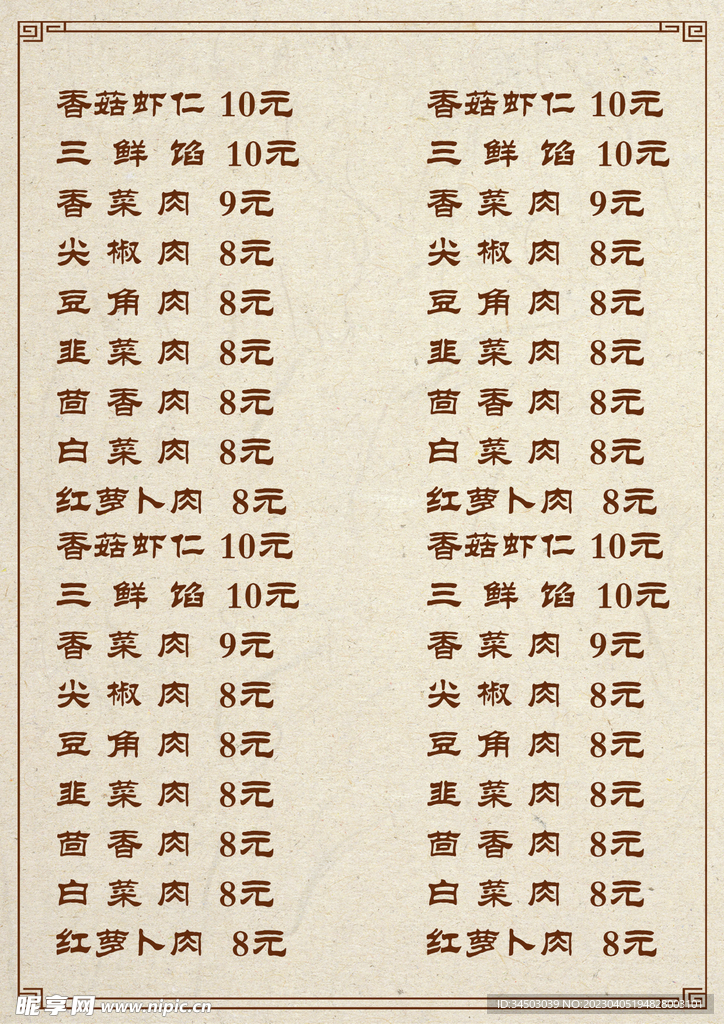 香菇虾仁 10元
三鲜馅 10元
香菜肉 9元
尖椒肉 8元
豆角肉 8元
韭菜肉 8元
茴香肉 8元
白菜肉 8元
红萝卜肉 8元
香菇虾仁 10元
三鲜馅 10元
香菜肉 9元
尖椒肉 8元
豆角肉 8元
韭菜肉 8元
茴香肉 8元
白菜肉 8元
红萝卜肉 8元
香菇虾仁 10元
三鲜馅 10元
香菜肉 9元
尖椒肉 8元
豆角肉 8元
韭菜肉 8元
茴香肉 8元
白菜肉 8元
红萝卜肉 8元
香菇虾仁 10元
三鲜馅 10元
香菜肉 9元
尖椒肉 8元
豆角肉 8元
韭菜肉 8元
茴香肉 8元
白菜肉 8元
红萝卜肉 8元
昵享网 www.nipic.cn
ID:34503039 NO:20230405194828093101